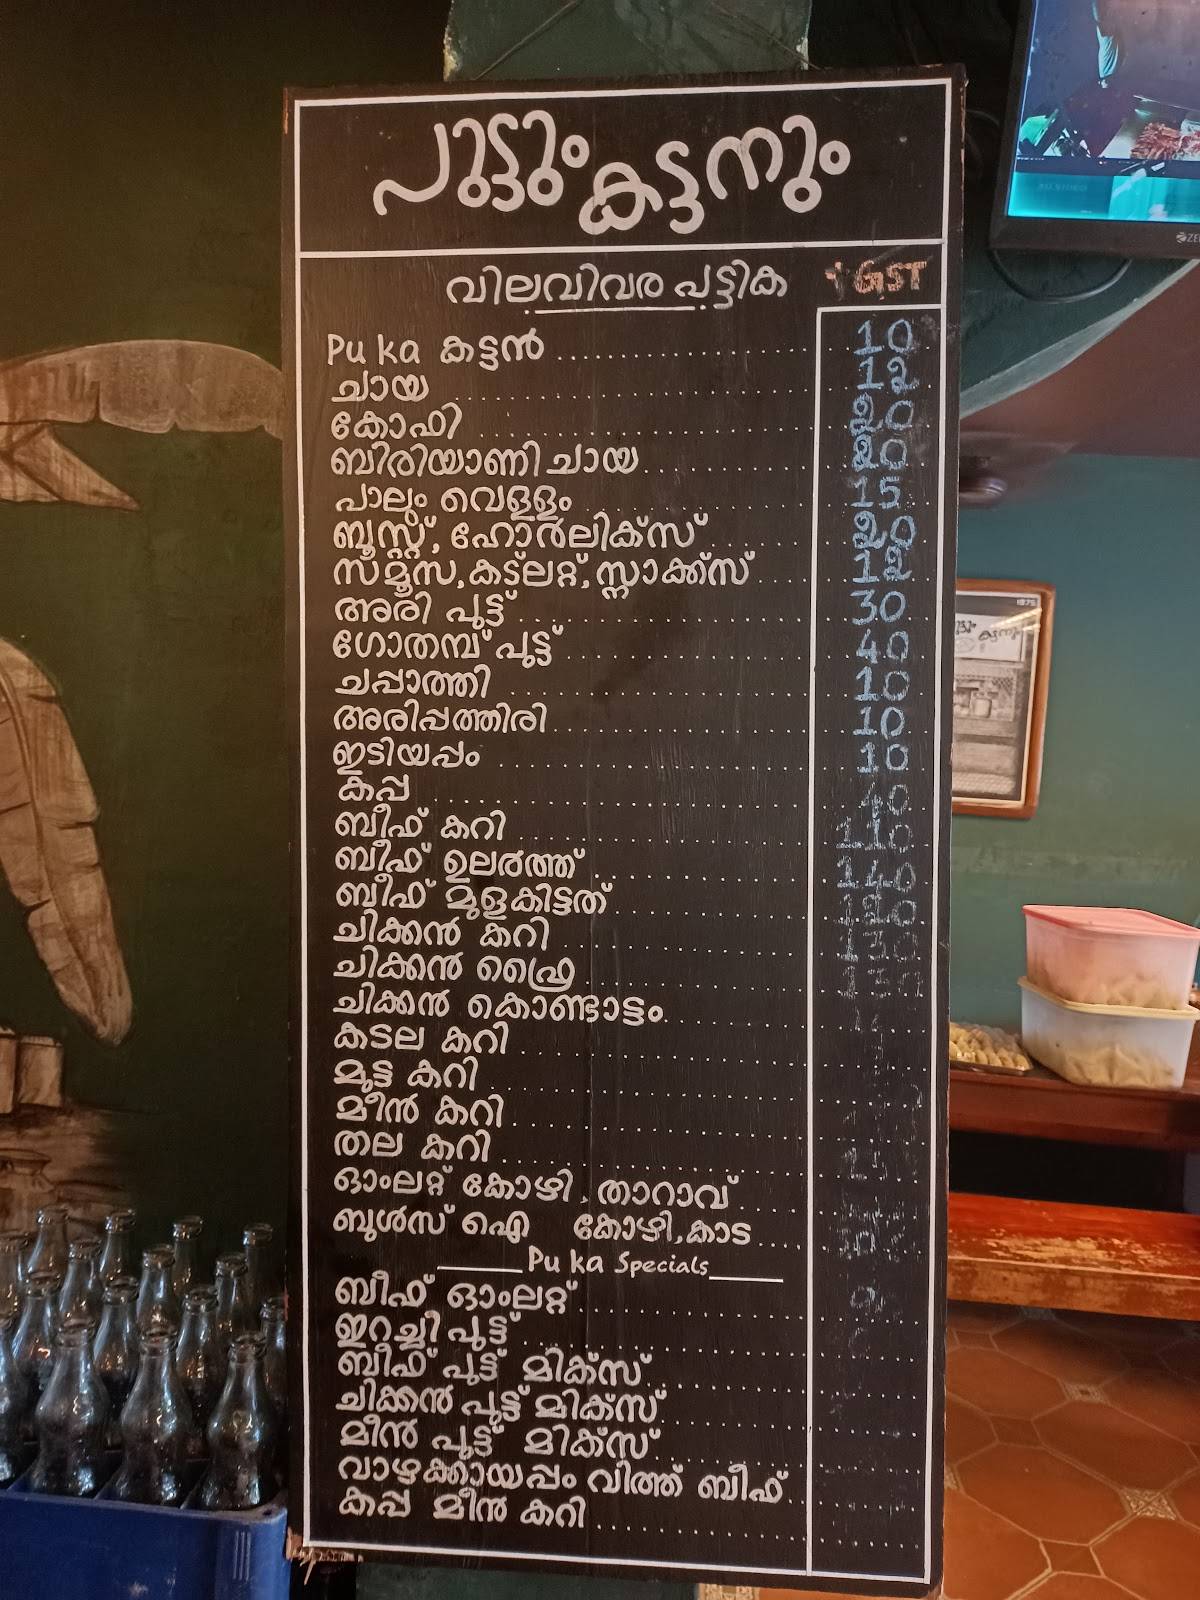 പുട്ടും കട്ടനും
വിലവിവര പട്ടിക + GST
Pu ka കട്ടൻ 10
ചായ 12
കോഫി 20
ബിരിയാണി ചായ 20
പാലും വെള്ളം 15
ബൂസ്റ്റ്, ഹോർലിക്സ് 20
സമൂസ, കട്ലറ്റ്, സ്നാക്ക്സ് 12
അരി പുട്ട് 30
ഗോതമ്പ് പുട്ട് 40
ചപ്പാത്തി 10
അരിപ്പത്തിരി 10
ഇടിയപ്പം 10
കപ്പ 40
ബീഫ് കറി 110
ബീഫ് ഉലർത്ത് 140
ബീഫ് മുളകിട്ടത് 120
ചിക്കൻ കറി 130
ചിക്കൻ ഫ്രൈ 130
ചിക്കൻ കൊണ്ടാട്ടം
കടല കറി
മുട്ട കറി
മീൻ കറി
തല കറി
ഓംലറ്റ് കോഴി, താറാവ്
ബുൾസ് ഐ കോഴി, കാട
Pu ka Specials
ബീഫ് ഓംലറ്റ്
ഇറച്ചി പുട്ട്
ബീഫ് പുട്ട് മിക്സ്
ചിക്കൻ പുട്ട് മിക്സ്
മീൻ പുട്ട് മിക്സ്
വാഴക്കായപ്പം വിത്ത് ബീഫ്
കപ്പ മീൻ കറി
1875